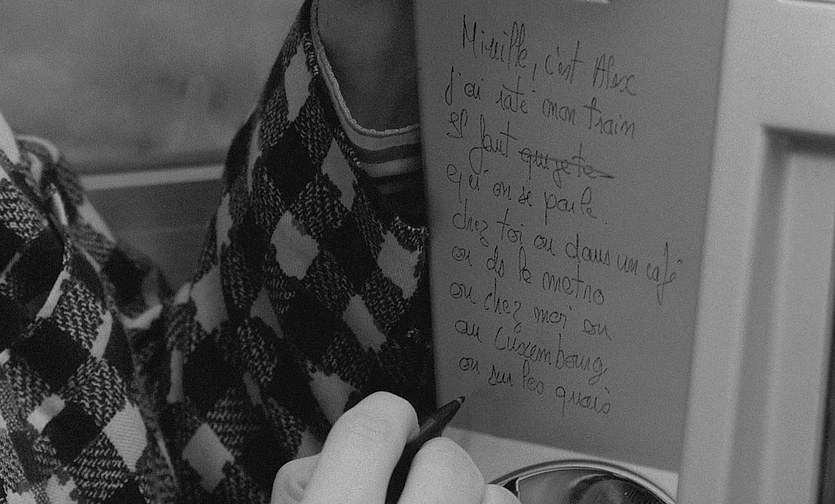 Mireille, c'est Alex
j'ai raté mon train
Il faut que je te
qu'on se parle.
chez toi ou dans un café
ou ds le metro
ou chez moi ou
au Luxembourg,
ou sur les quais